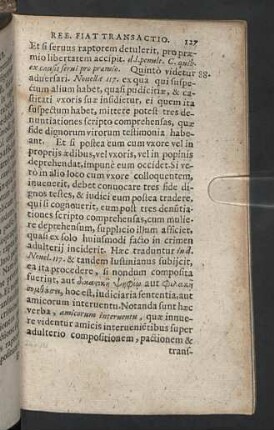 REB. FIAT TRANSACTIO. 127
Et si seruus raptorem detulerit, pro præ-
mio libertatem accipit. d.l.penult. C. quib.
ex causis serui pro præmio. Quinto videtur 88
aduersari. Nouella 117. ex qua qui suspe-
ctum alium habet, quasi pudicitiæ, & ca-
stitati vxoris suæ insidietur, ei quem ita
suspectum habet, mittere potest tres de-
nuntiationes scripto comprehensas, quæ
fide dignorum virorum testimonia habe-
ant. Et si postea eum cum vxore vel in
proprijs ædibus, vel vxoris, vel in popinis
deprehendat, impunè eum occidet. Si ve-
rò in alio loco cum vxore colloquentem,
inuenerit, debet conuocare tres fide di-
gnos testes, & iudici eum postea tradere,
qui si cognouerit, eum post tres denūtia-
tiones scripto comprehensas, cum mulie-
re deprehensum, supplicio illum afficiet,
quasi ex solo huiusmodi facto in crimen
adulterij inciderit. Hæc traduntur in d.
Nouel. 117. & tandem Iustinianus subijcit,
ea ita procedere, si nondum composita
fuerint, aut δικανικῇ ψήφῳ aut φιλικῇ
συμβάσει, hoc est, iudiciaria sententia, aut
amicorum interuentu. Notanda sunt hæc
verba, amicorum interuentu, quæ innue-
re videntur amicis interuenientibus super
adulterio compositionem, pactionem &
trans-